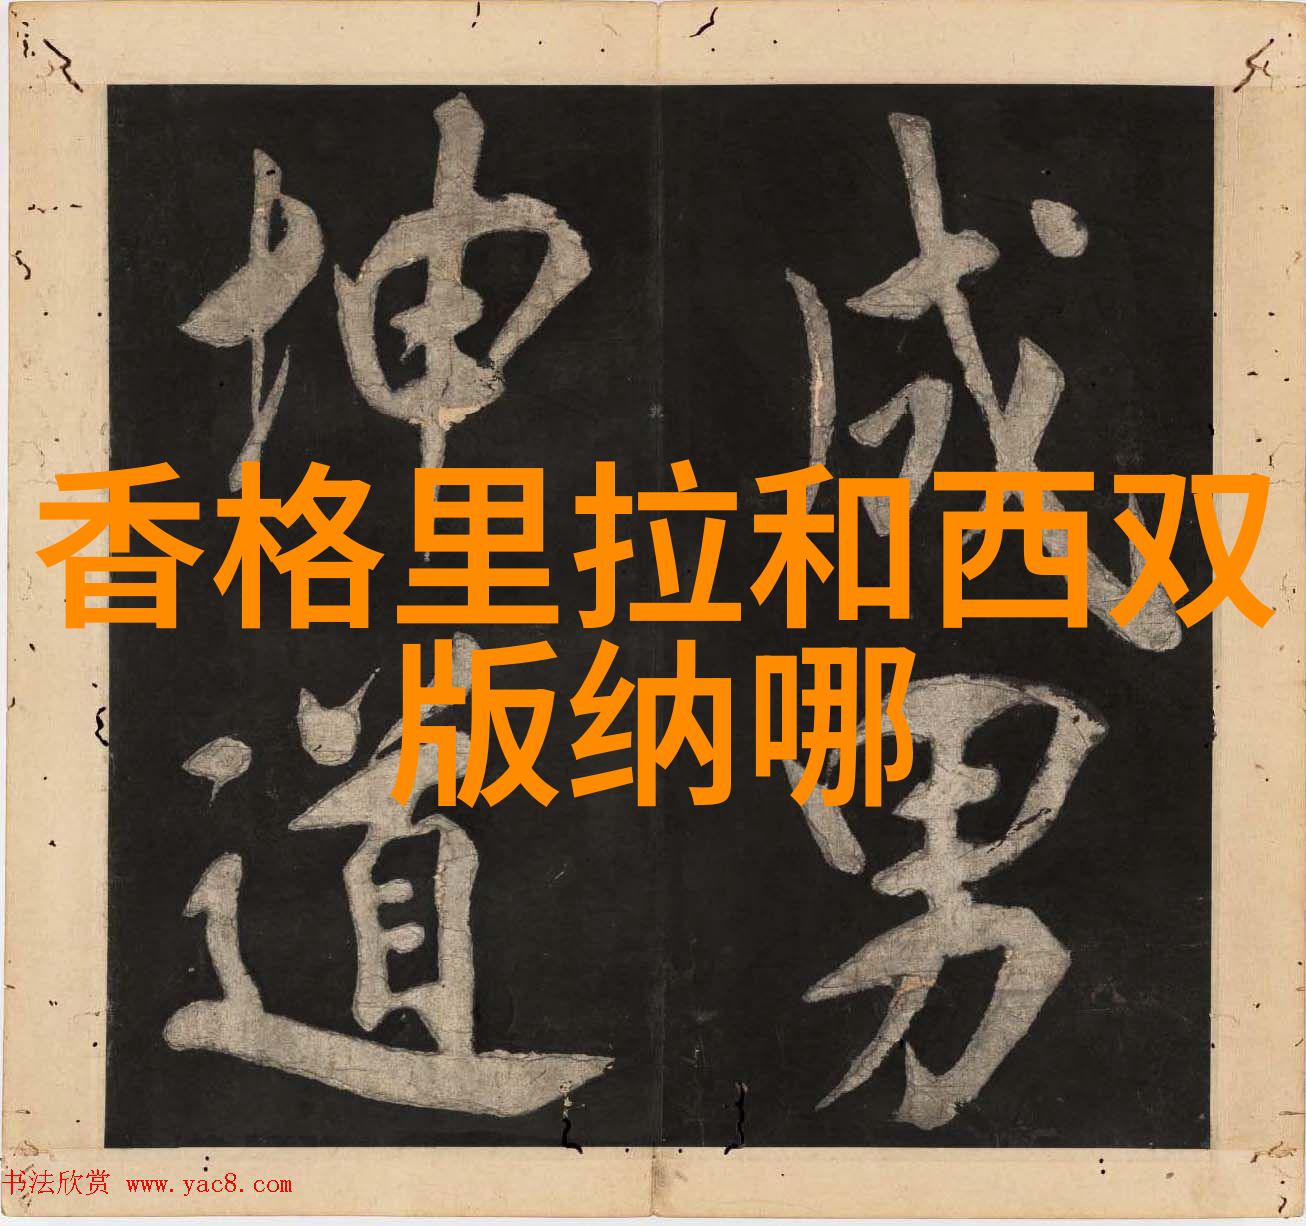 成男
坤道
香格里拉和西双
版纳哪
书法欣赏 www.yac8.com